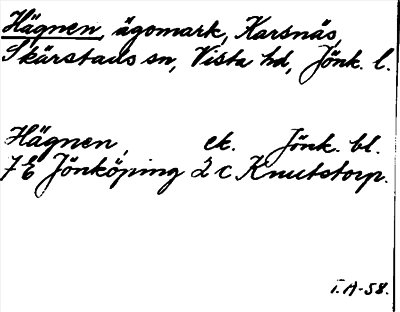 Hägnen, ägomark, Karsnäs,
Skärstads sn, Vista hd, Jönk. l.
Hägnen, ek. Jönk. bl.
7 E Jönköping 2 c Knutstorp.
I.A-58.